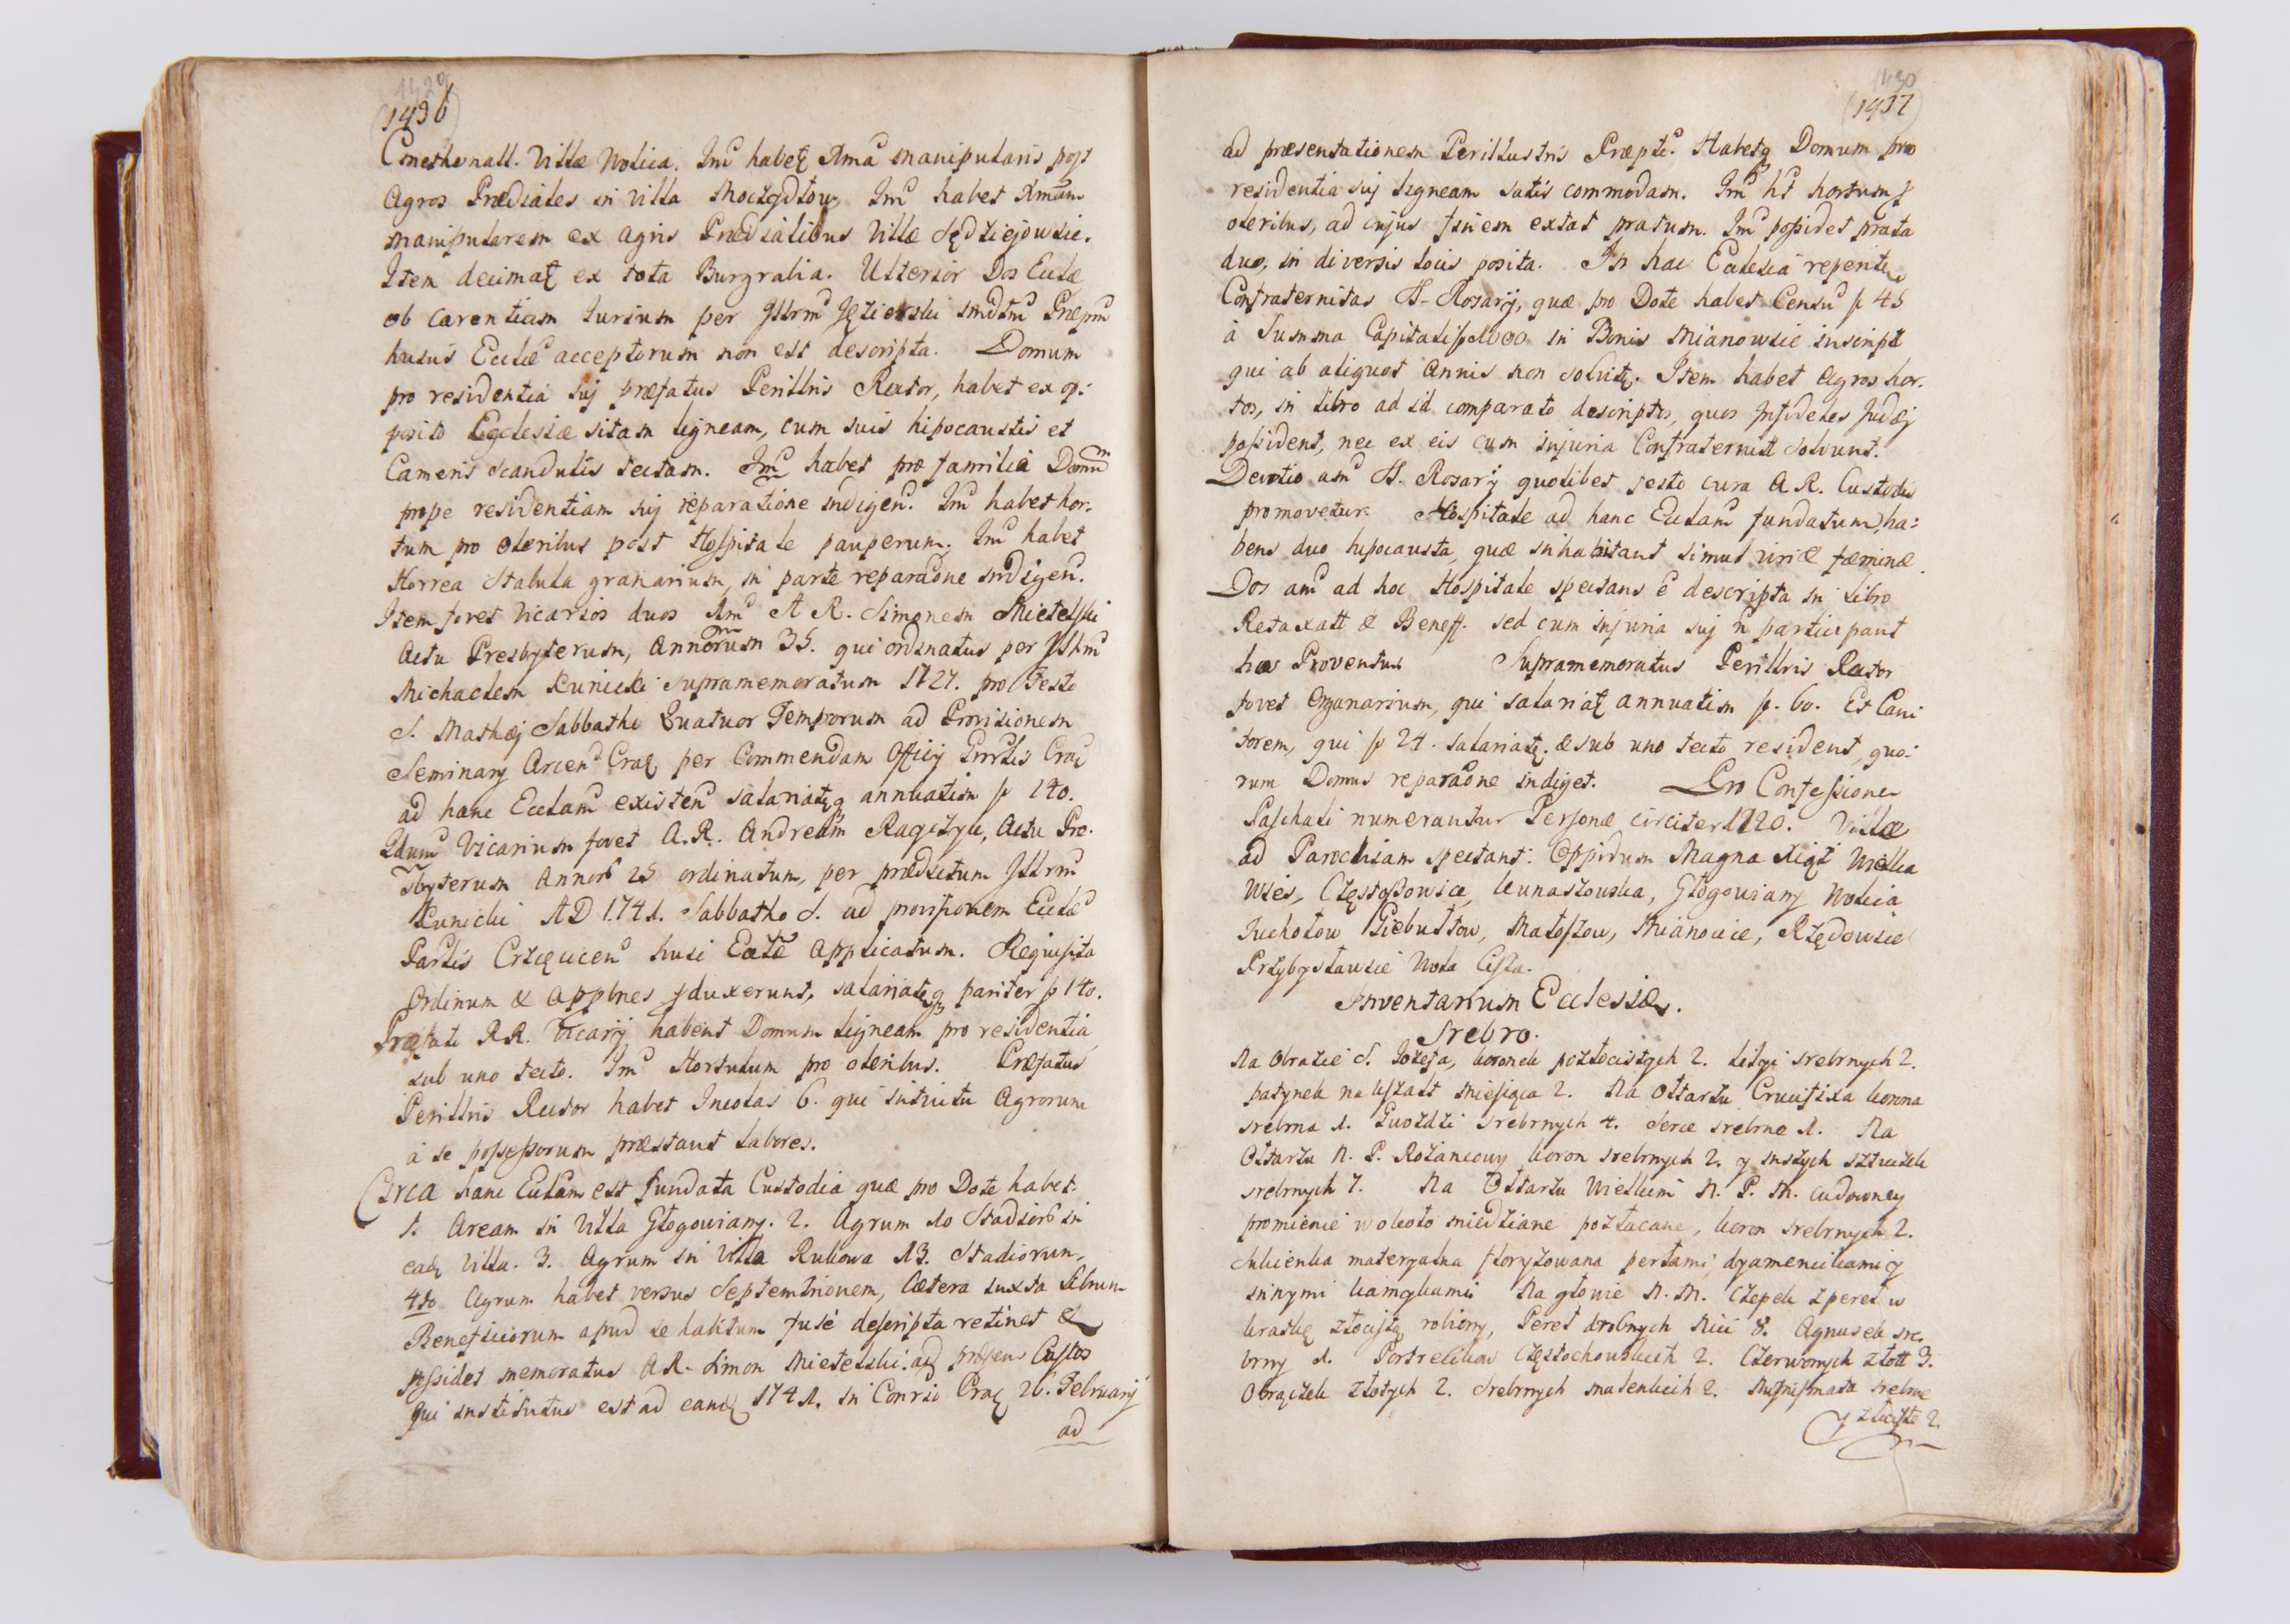 1429
(1436)
Cmethonall. Villæ Wolica. Imc habetq Xma manipularis post
Agros Prædiales in Villa Moczydłow, Imc habet Xmam
manipularem ex agris Prædialibus Villæ Sędziejowsie.
Item decimaq ex tota Burgrabia. Ulterior Dos Eclæ
ob carentiam Jurium per Illrm Jęzierski imdtm Præpm
hujus Ecclæ acceptorum non est descripta. Domum
pro residentia sui præfatus Perillris Rector, habet ex op:
posito Ecclesiæ sitam ligneam, cum suis hipocaustis et
Cameris scandulis tectam. Imc habet pro familia Domum
prope residentiam sui reparatione indigen. Imc habet hor-
tum pro oleribus post Hospitale pauperum. Imc habet
Horrea Stabula granarium, in parte reparaone indigen.
Item fovet Vicarios duos Imc A R. Simonem Mietelski
Actu Presbyterum, Annorum 35. qui ordinatus per Illrm
Michaelem Kunicki supramemoratum 1727. pro Festo
S. Mathæj Sabbatho Quatuor Temporum ad Provisionem
Seminarij Arcen Craq per Commendam Officij Gnrlis Crac
ad hanc Eclam existen salariatq annuatim f 140.
2dum Vicarium fovet A. R. Andream Raqczyc, Actu Pre-
sbyterum Annor 25 ordinatum, per prædictum Illrm
Kunicki AD 1741. Sabbatho S. ad provisionem Eclæ
Parlis Crzęcicen huic Ecclæ applicatum. Requisita
Ordinum & applnes produxerunt, salariatq pariter f 140.
Præfati RR. Vicarij habent Domum ligneam pro residentia
sub uno tecto. Imc Hortulum pro oleribus. Præfatus
Perillris Rector habet Incolas 6. qui intuitu Agrorum
à se possessorum præstant labores.
Circa hanc Eclam est fundata Custodia quæ pro Dote habet.
1. Aream in Villa Głogowiany. 2. Agrum 10 Stadior in
eadq Villa. 3. Agrum in Villa Rukowa 13. Stadiorum,
4to Agrum habet versus Septemtrionem, Cætera iuxta Librum
Beneficiorum apud se habitum fusè descripta retinet &
possidet memoratus AR. Simon Mietelski: adq præsens Custos
qui institutus est ad eamdq 1741. in Conrio Craq 26. Februarij
ad
1430
(1437)
ad præsentationem Perillustris Præpti. Habetq Domum pro
residentia sui ligneam satis commodam. Imc ht hortum p
oleribus, ad cujus finem extat pratum. Imc possidet prata
duo, in diversis locis posita. In hac Ecclesia reperitur
Confraternitas S. Rosarij, quæ pro Dote habet Censu f 45
à Summa Capitali f 1000 in Bonis Mianowsie inscript
qui ab aliquot Annis non solvitq. Item habet Agros hor-
tos, in libro ad id comparato descriptos, quos Infideles Judæj
possident, nec ex eis cum injuria Confraternitt solvunt.
Devotio am S. Rosarij quolibet festo cura A R. Custodis
promovetur. Hospitale ad hanc Eclam fundatum, ha:
bens duo hipocausta, quæ inhabitant simul viri & fæminæ.
Dos am ad hoc Hospitale spectans e descripta in Libro
Retaxatt & Beneff. sed cum injuria sui n participant
hos Proventus Supramemoratus Perillris Rector
fovet Organarium, qui salariatq annuatim f. 60. Et Can:
torem, qui f 24. salariatq. & sub uno tecto resident, quo:
rum Domus reparaone indiget. Pro Confessione
Paschali numerantur Personæ circiter 1120. Villæ
ad Parochiam spectant: Oppidum Magna Xiąż Wielka
Wieś, Częstoszowice, Kunaszowka, Głogowiany Wolica
Tuchotow Giebułtow, Małoszow, Mianowice, Rzędowsce
Przybysławsie Wola Cisla.
Inventarium Ecclesiæ.
Srebro.
Na Obrazie S. Jozefa, koronek pozłocistych 2. Lilyi srebrnych 2.
patynek na kształt miesiąca 2. Na Ołtarzu Crucifixa korona
srebrna 1. Gwoździ srebrnych 4. Serce srebrne 1. Na
Ołtarzu N. P. Rożancowy koron srebrnych 2. y inszych sztuczek
srebrnych 7. Na Ołtarzu Wielkim N. P. M. cudowney
promienie wokoło miedziane pozłacane, koron srebrnych 2.
Sukienka materyalna floryzowana perłami, dyamencikami y
innymi kamykami Na głowie N. M. Czepek z pereł w
kratkę złocistą robiony, Pereł drobnych Nici 8. Agnusek sre-
brny 1. Portrecikow Częstochowskich 2. Czerwonych złott 3.
Obrączek złotych 2. Srebrnych malenkich 2. Numismata srebrne
y złociste 2.